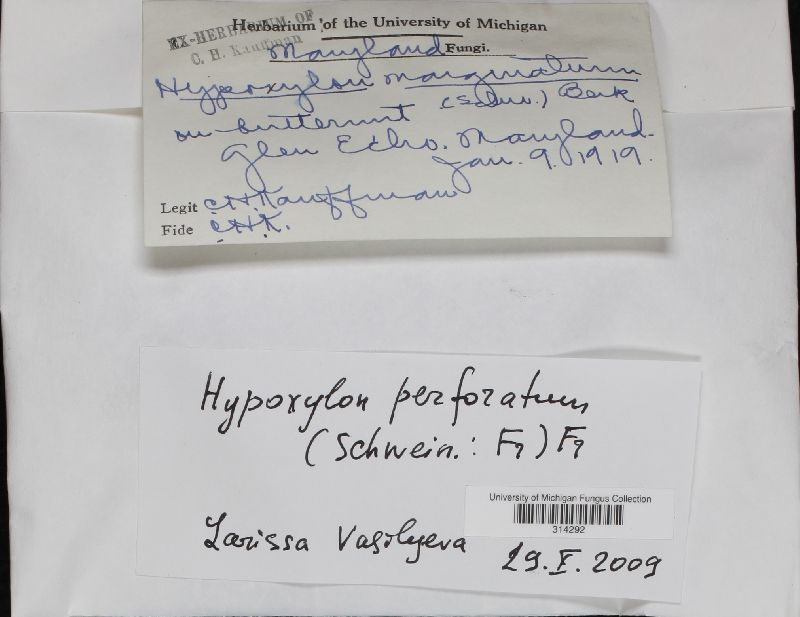 Herbarium of the University of Michigan
EX-HERBARIUM OF
C. H. Kauffman
Maryland Fungi.
Hypoxylon marginatum
(Schw.) Berk
on butternut
Glen Echo. Maryland.
Jan. 9. 1919.
Legit C.H.Kauffman
Fide C.H.K.
Hypoxylon perforatum
(Schwein.: Fr) Fr
University of Michigan Fungus Collection
314292
Larissa Vasilyeva
29.X.2009